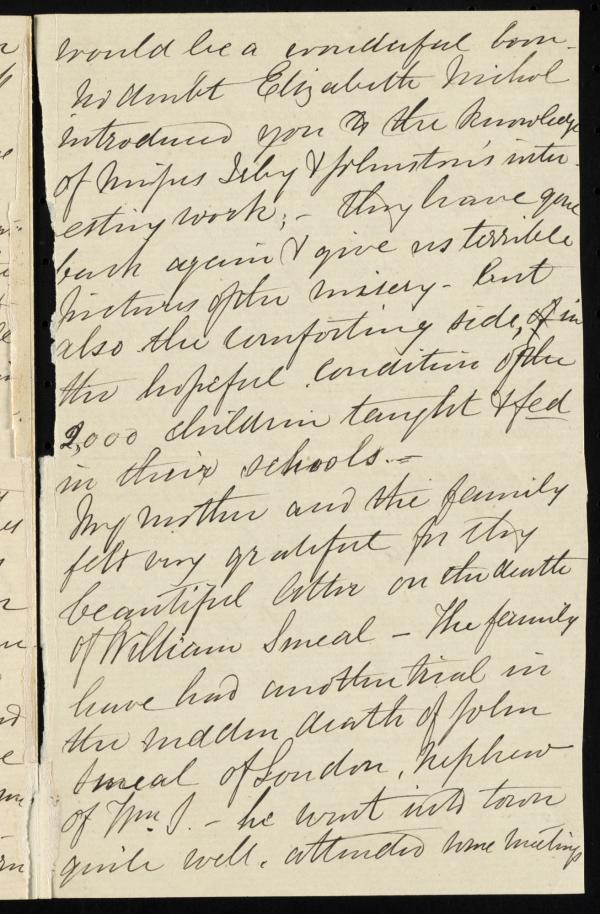 would be a wonderful boon.
No doubt Elizabeth Nichol
introduced you to the knowledge
of Misses Irby & Johnston's inter-
esting work; – they have gone
back again & give us terrible
pictures of the misery – but
also the comforting side, of in
the hopeful condition of the
2,000 children taught & fed
in their schools. –
My mother and the family
felt very grateful for thy
beautiful letter on the death
of William Smeal – The family
have had another trial in
the sudden death of John
Smeal of London, nephew
of Wm. S. – he went into town
quite well, attended some meetings